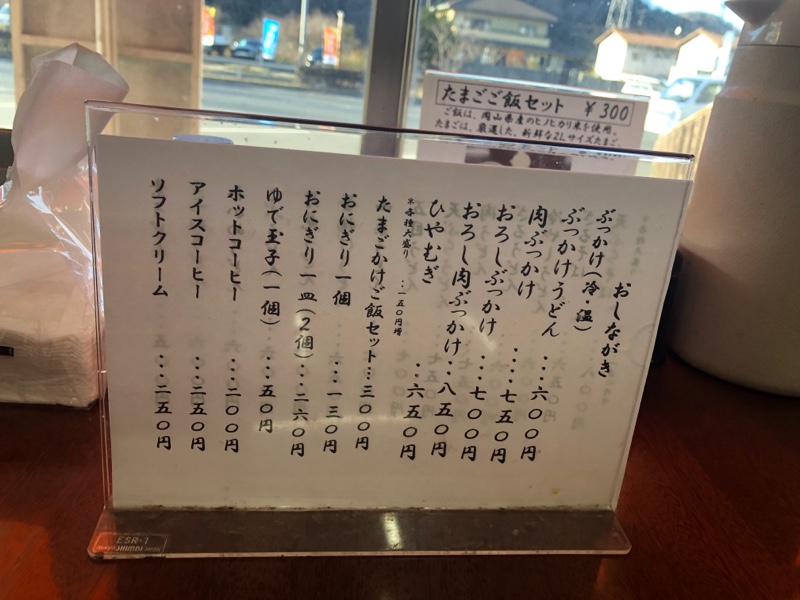 たまごご飯セット ￥300
ご飯は、岡山県産のヒノヒカリ米を使用。
たまごは、厳選した、新鮮な2Lサイズたまご
おしながき
ぶっかけ(冷・温)
ぶっかけうどん…六〇〇円
肉ぶっかけ…七五〇円
おろしぶっかけ…七〇〇円
おろし肉ぶっかけ…八五〇円
ひやむぎ…六五〇円
※各種大盛り…一五〇円増
たまごかけご飯セット…三〇〇円
おにぎり一個…一三〇円
おにぎり一皿(2個)…二六〇円
ゆで玉子(一個)…五〇円
ホットコーヒー…二〇〇円
アイスコーヒー…二五〇円
ソフトクリーム…二五〇円
ESR-1